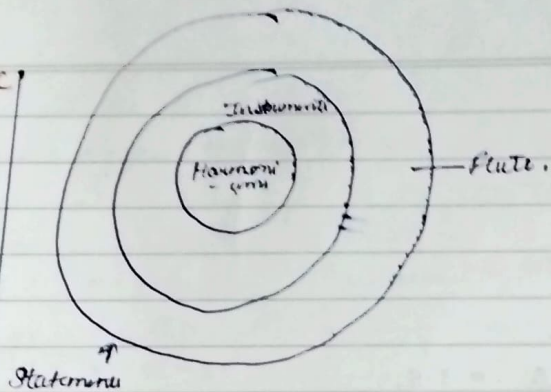 Instruments
Harmoni
- ums
Flute.
Statements